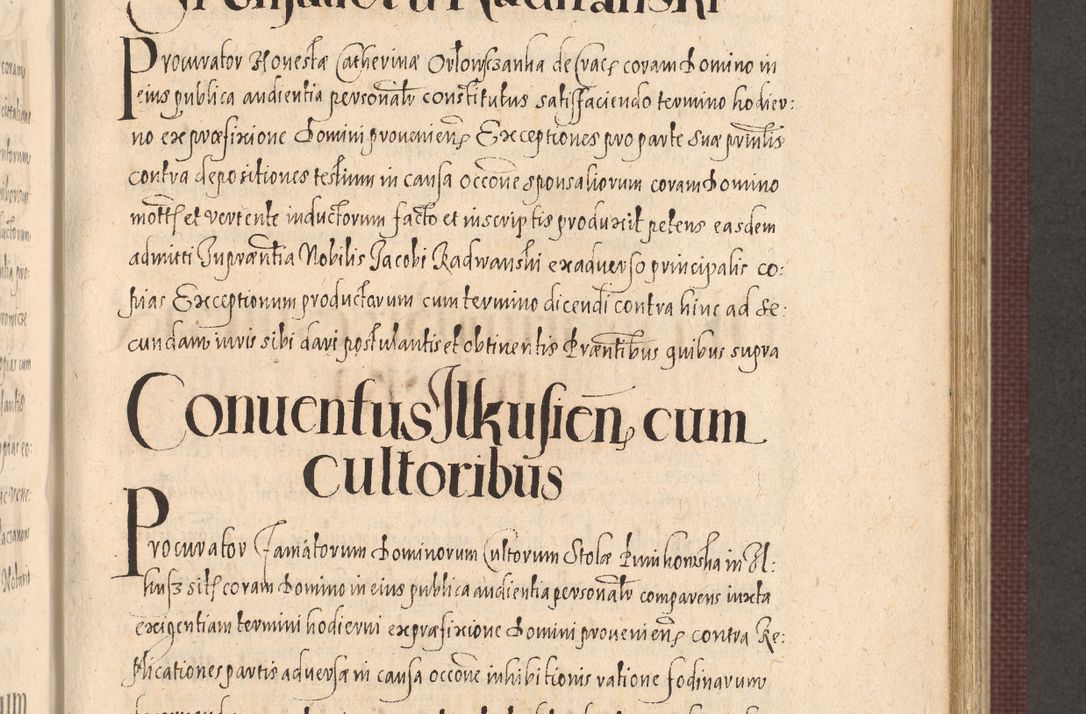 Procurator Honestæ Catherinæ Orłowsczanka de Crac coram Domino in
eius publica audientia personalr constitutus satisfaciendo termino hodier:
no ex præfixione Domini provenien Exceptiones pro parte suæ prinlis
contra depositiones testium in causa occone sponsaliorum coram Domino
mott et vertente inductorum facto et inscriptis produxit petens easdem
admitti In præntia Nobilis Jacobi Radwanski ex adverso principalis co:
pias Exceptionum productarum cum termino dicendi contra hinc ad se:
cundam iuris sibi dari postulantis et obtinentis Præntibus quibus supra
Conuentus Ilkusien cum
cultoribus
Procurator Famatorum Dominorum Cultorum Stolæ Punikowska in Il:
kusz sit coram Domino in eius publica audientia personalr comparens iuxta
exigentiam termini hodierni ex præfixione Domini provenien contra Re:
plicationes partis adversæ in causa occone inhibitionis ratione fodinarum